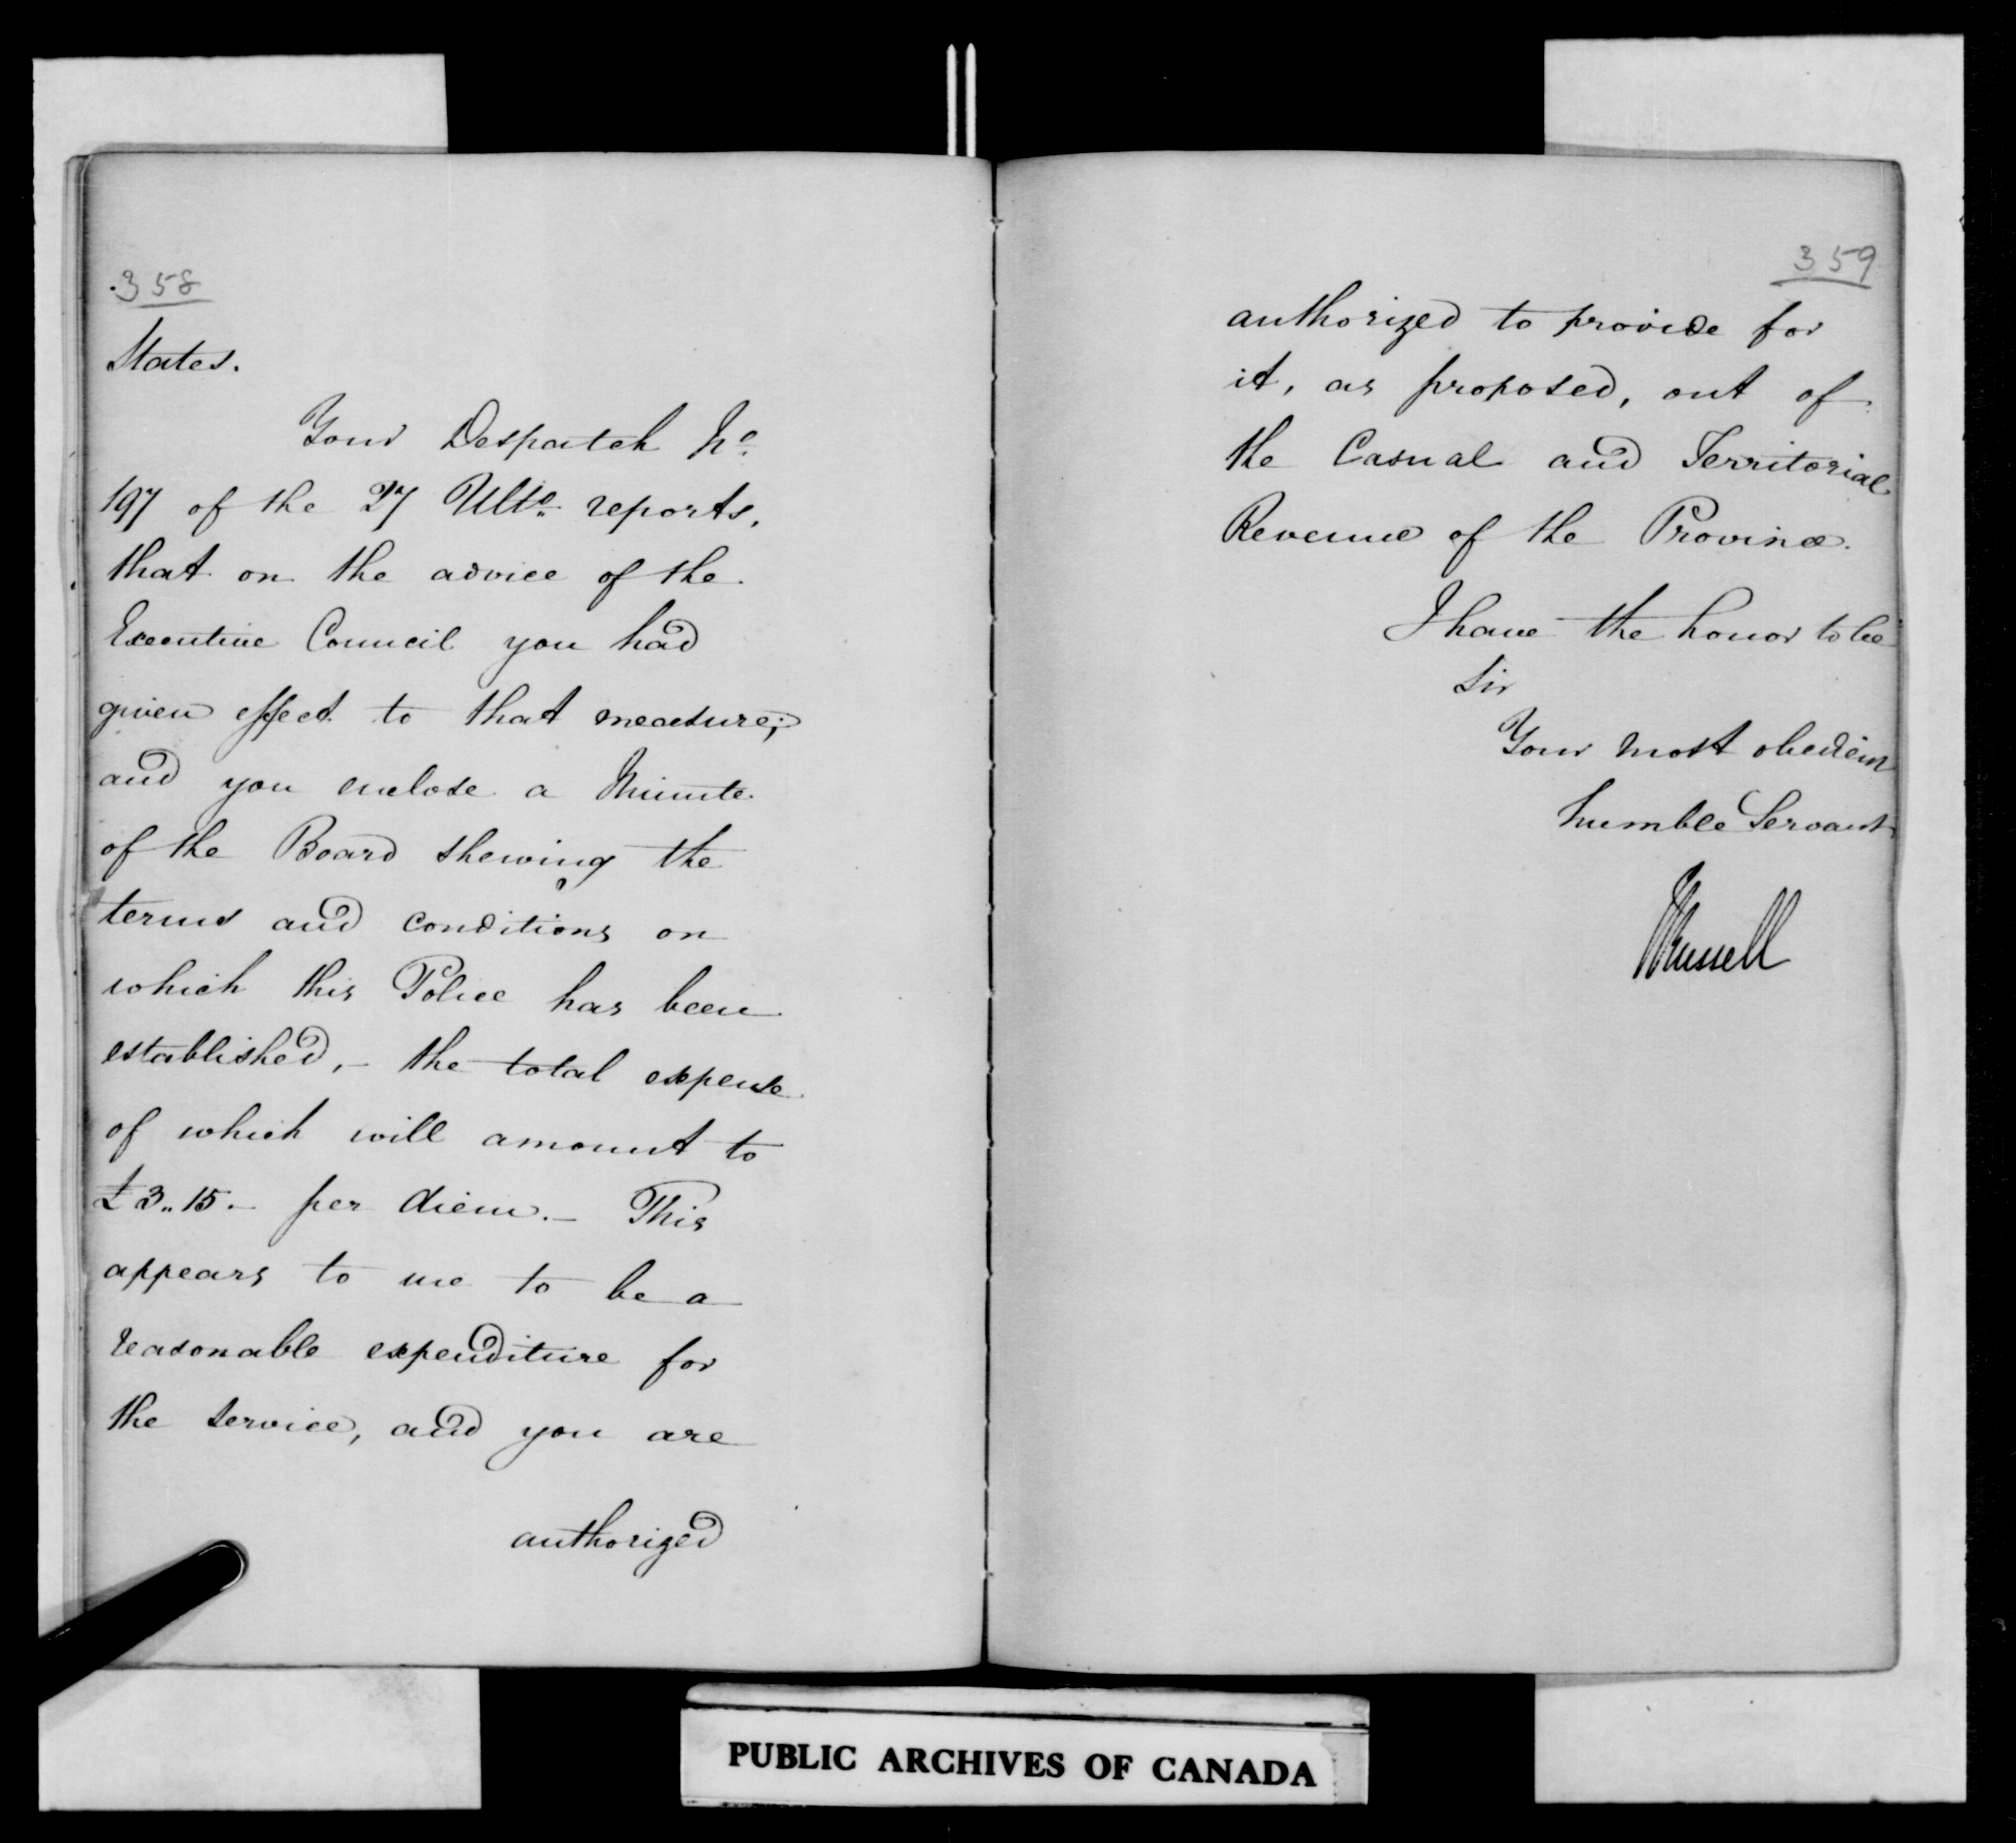 358
States.
Your Despatch No.
197 of the 27 Ulto. reports,
that on the advice of the
Executive Council you had
given effect to that measure;
and you enclose a Minute
of the Board shewing the
terms and conditions on
which this Police has been
established, - the total expense
of which will amount to
£3..15.- per diem. - This
appears to me to be a
reasonable expenditure for
the service, and you are
authorized
359
authorized to provide for
it, as proposed, out of
the Casual and Territorial
Revenue of the Province.
I have the honor to be
Sir
Your most obedient
humble Servant
J Russell
PUBLIC ARCHIVES OF CANADA